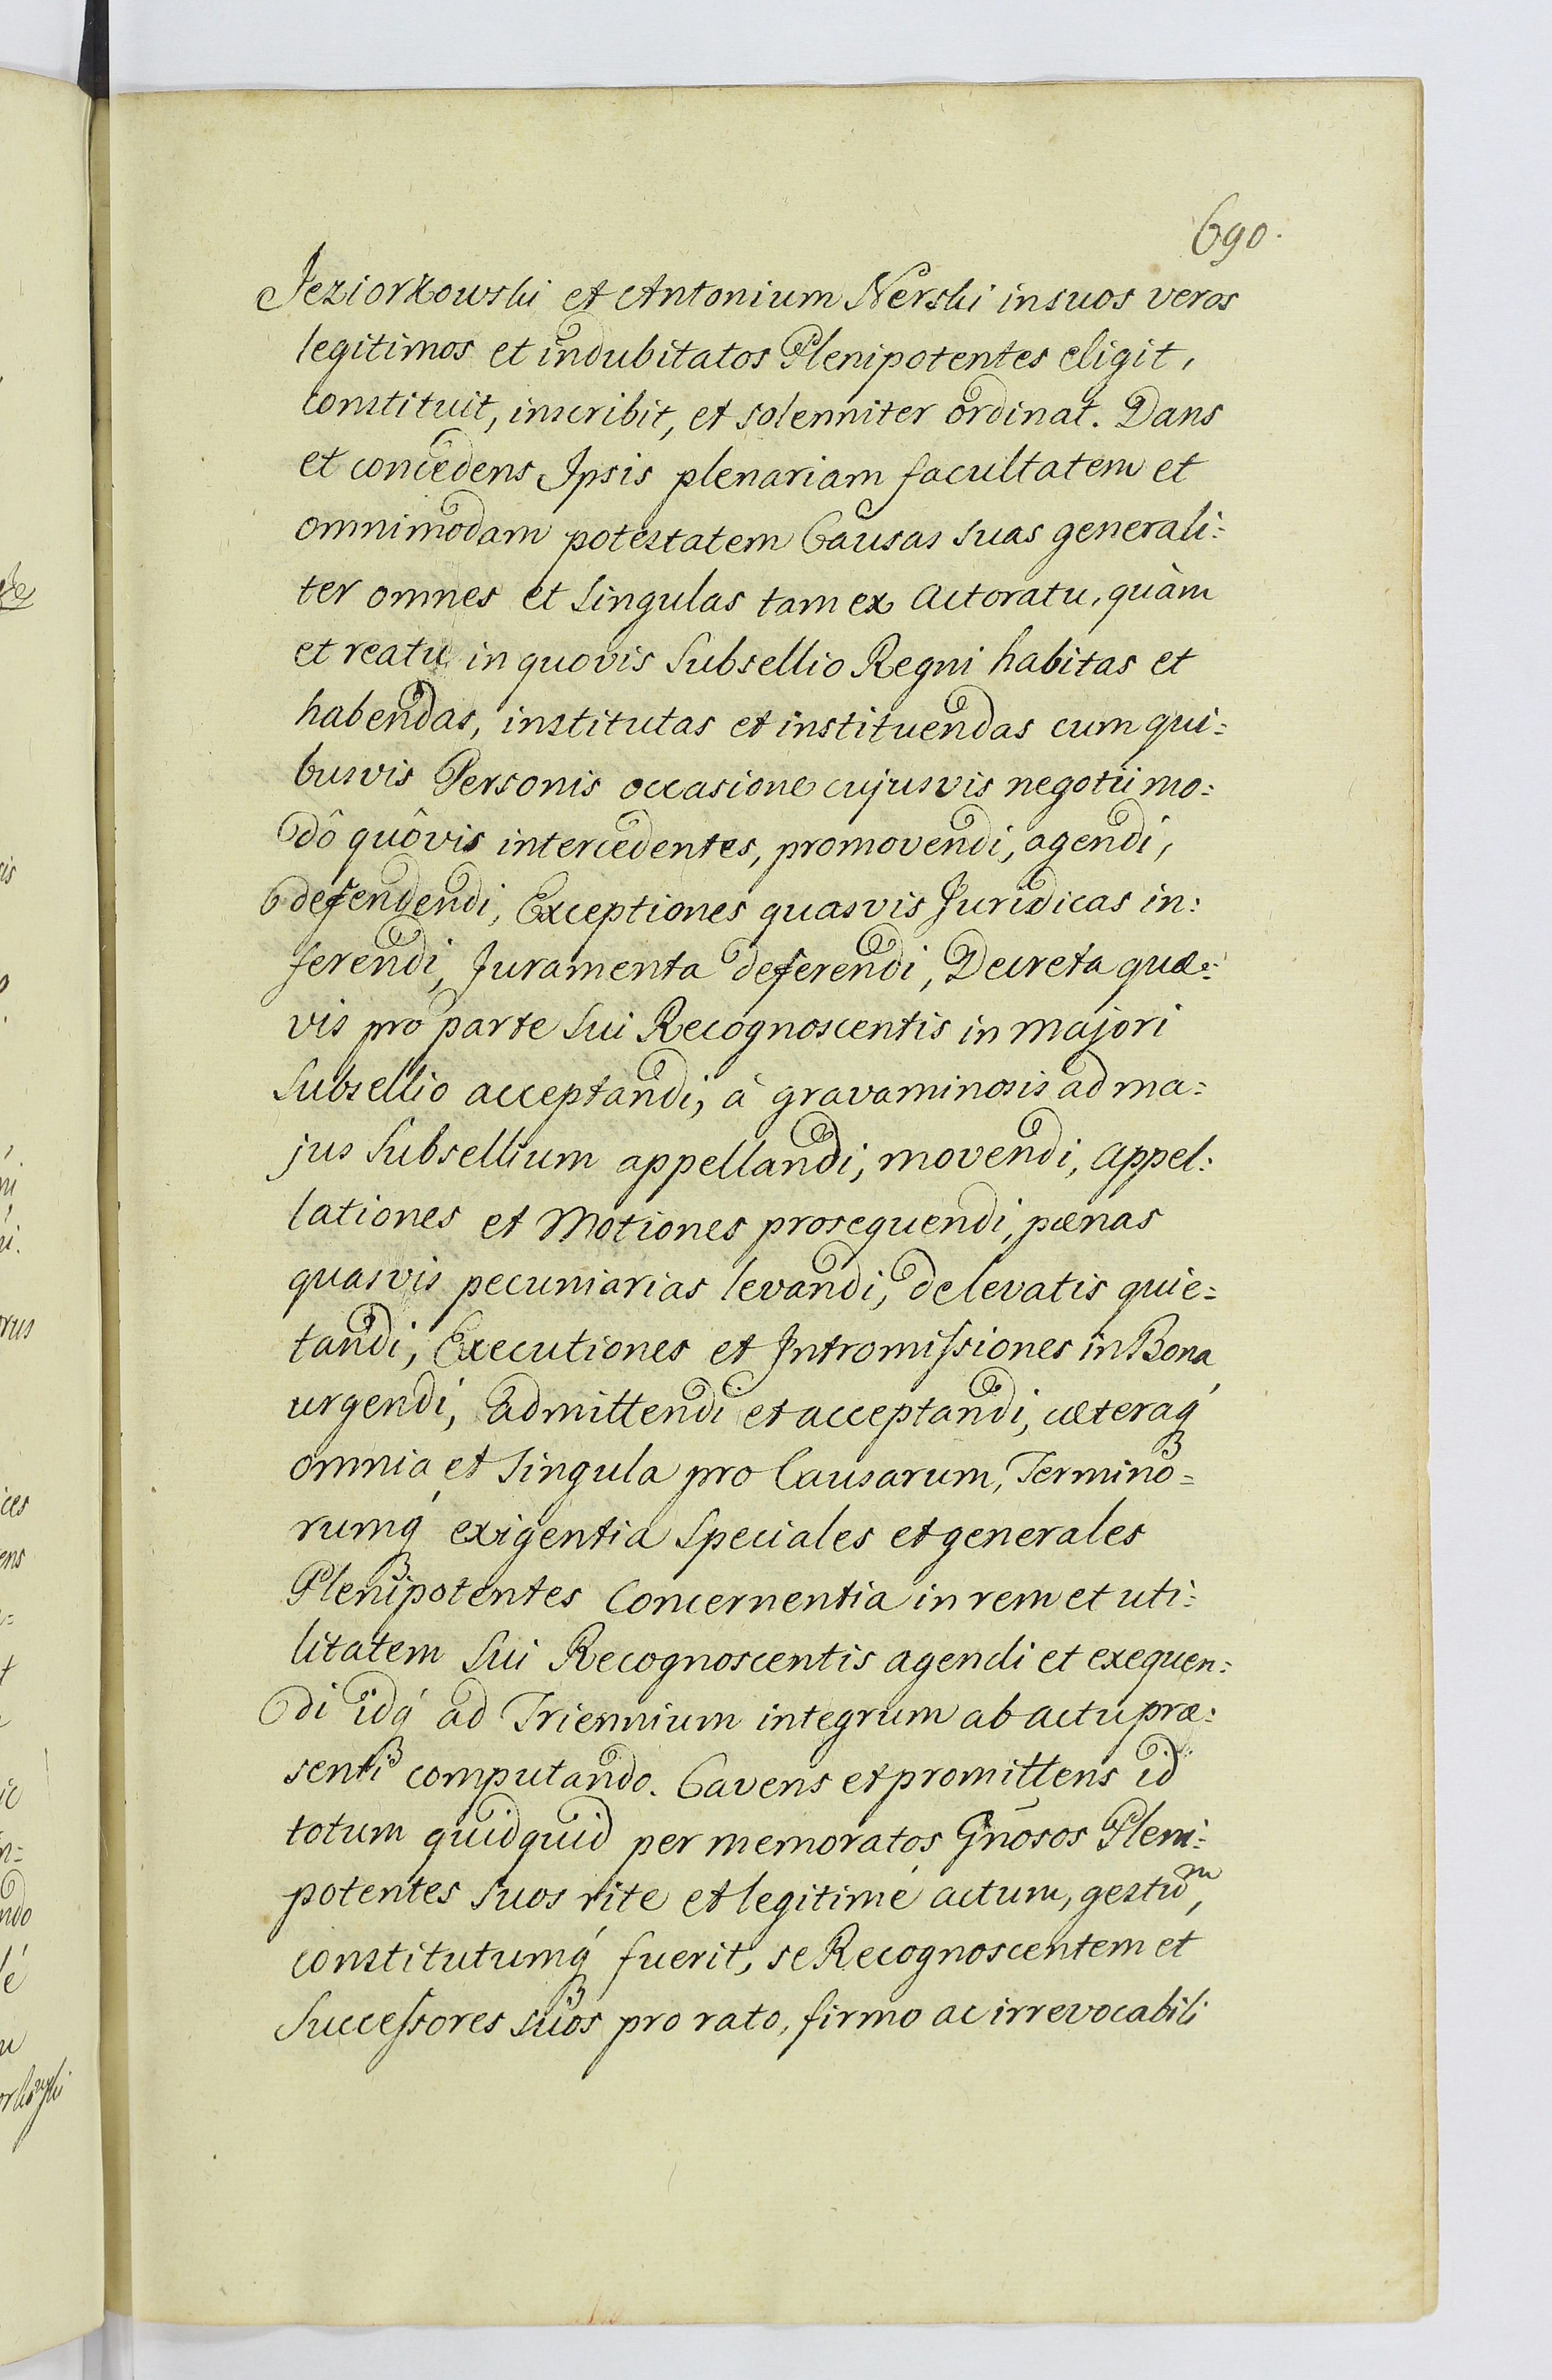 690.
Jeziorkowski et Antonium Nerski in suos veros
legitimos et indubitatos Plenipotentes eligit,
constituit, inscribit, et solenniter ordinat. Dans
et concedens Ipsis plenariam facultatem et
omnimodam potestatem Causas suas generali=
ter omnes et singulas tam ex Actoratu, quàm
et reatu in quovis Subsellio Regni habitas et
habendas, institutas et instituendas cum qui=
busvis Personis occasione cujusvis negotii mo=
dô quôvis intercedentes, promovendi, agendi,
defendendi, Exceptiones quasvis Juridicas in=
ferendi, Juramenta deferendi, Decreta quæ=
vis pro parte sui Recognoscentis in majori
Subsellio acceptandi, à gravaminosis ad ma=
jus Subsellium appellandi, movendi, Appel=
lationes et Motiones prosequendi, pænas
quasvis pecuniarias levandi, de levatis quie=
tandi, Executiones et Intromissiones in Bona
urgendi, admittendi et acceptandi, cæteraq́3
omnia et singula pro Causarum, Termino=
rumq́3 exigentia speciales et generales
Plenipotentes Concernentia in rem et uti=
litatem sui Recognoscentis agendi et exequen=
di idq́3 ad Triennium integrum ab actu præ=
senti computando. Cavens et promittens id
totum quidquid per memoratos Gn̄osos Pleni=
potentes suos rite et legitimé actum, gestum,
constitutumq́3 fuerit, se Recognoscentem et
Successores suos pro rato, firmo ac irrevocabili